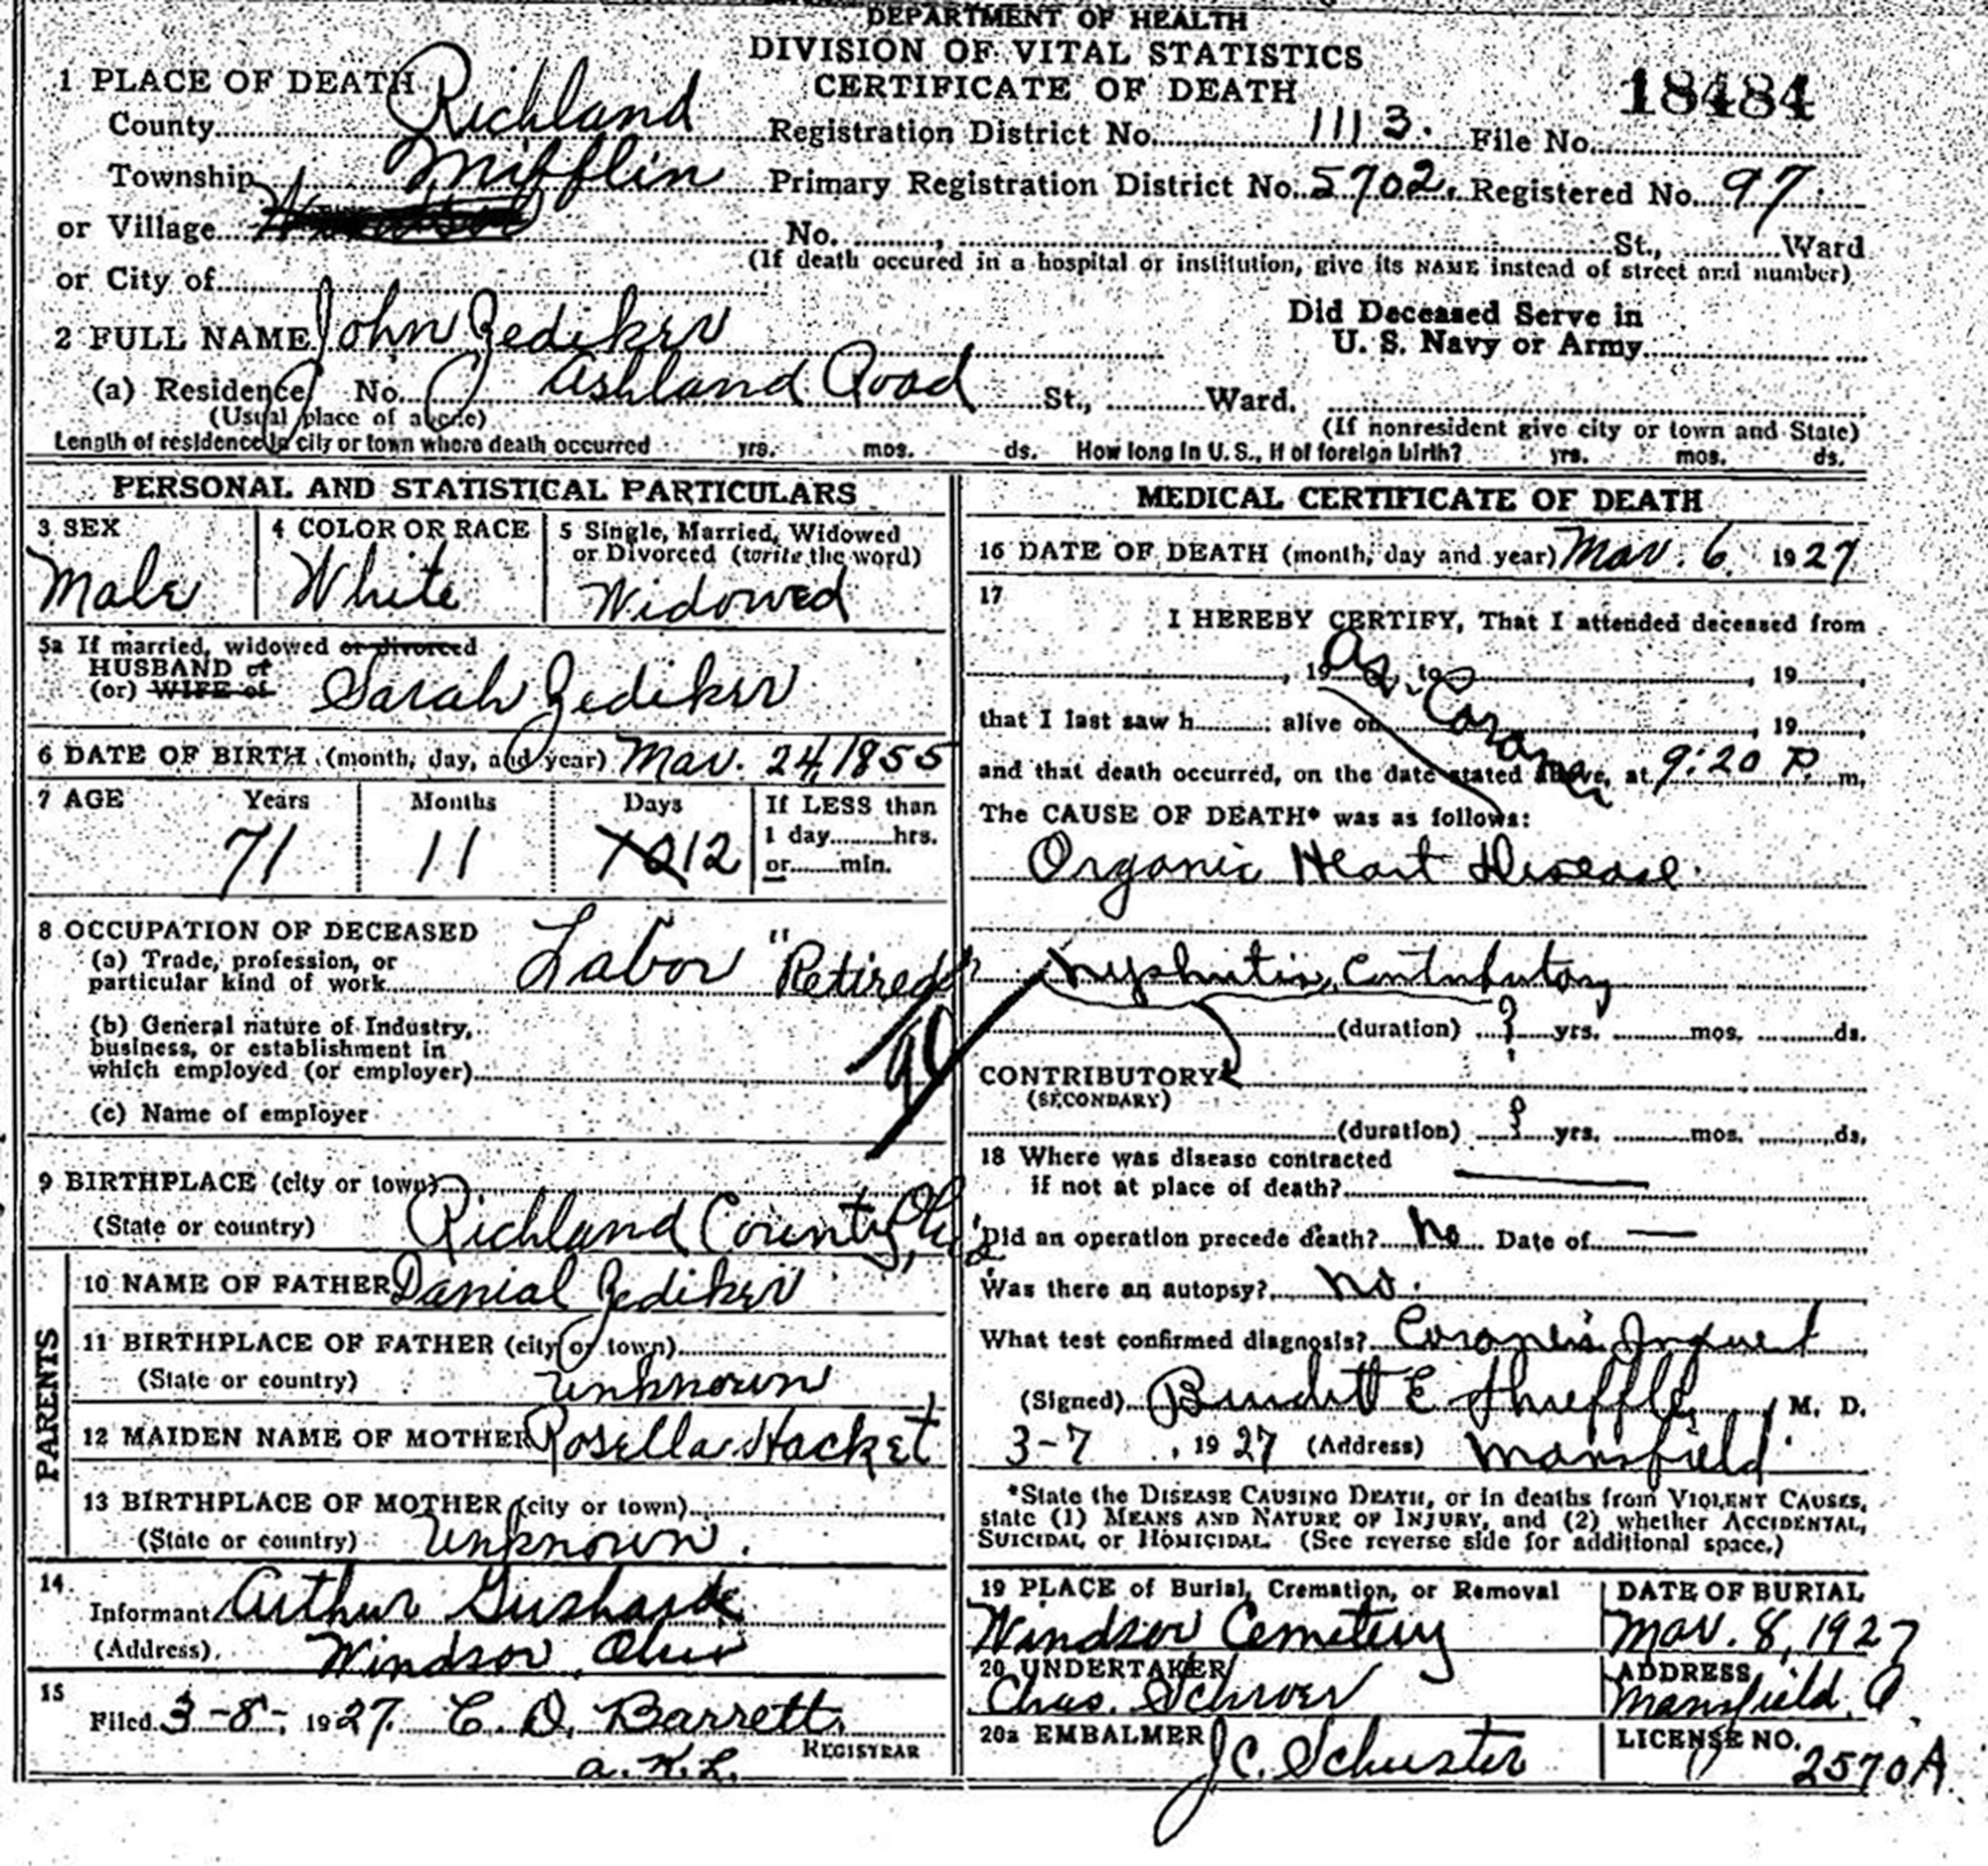 DEPARTMENT OF HEALTH
DIVISION OF VITAL STATISTICS
CERTIFICATE OF DEATH
18484
1 PLACE OF DEATH
County Richland Registration District No. 1113. File No.
Township Mifflin Primary Registration District No. 5702. Registered No. 97
or Village No. , St., Ward
(If death occured in a hospital or institution, give its NAME instead of street and number)
or City of
Did Deceased Serve in
U. S. Navy or Army
2 FULL NAME John Zediker
(a) Residence No. Ashland Road St., Ward.
(Usual place of abode) (If nonresident give city or town and State)
Length of residence in city or town where death occurred yrs. mos. ds. How long in U. S., if of foreign birth? yrs. mos. ds.
PERSONAL AND STATISTICAL PARTICULARS
3 SEX 4 COLOR OR RACE 5 Single, Married, Widowed
or Divorced (write the word)
Male White Widowed
5a If married, widowed or divorced
HUSBAND of
(or) WIFE of Sarah Zediker
6 DATE OF BIRTH (month, day, and year) Mar. 24, 1855
7 AGE Years Months Days If LESS than
1 day hrs.
or min.
71 11 12
8 OCCUPATION OF DECEASED
(a) Trade, profession, or
particular kind of work Labor "Retired"
(b) General nature of Industry,
business, or establishment in
which employed (or employer)
(c) Name of employer
90
9 BIRTHPLACE (city or town)
(State or country) Richland County, Ohio
PARENTS
10 NAME OF FATHER Danial Zediker
11 BIRTHPLACE OF FATHER (city or town)
(State or country) unknown
12 MAIDEN NAME OF MOTHER Rosella Hacket
13 BIRTHPLACE OF MOTHER (city or town)
(State or country) Unknown.
14
Informant Arthur
(Address) Windsor, Ohio
15
Filed 3-8-, 1927. C. D. Barrett,
REGISTRAR
a. K. L.
MEDICAL CERTIFICATE OF DEATH
16 DATE OF DEATH (month, day and year) Mar. 6. 1927
17
I HEREBY CERTIFY, That I attended deceased from
, 19 , to , 19
As Coroner
that I last saw h alive on , 19 ,
and that death occurred, on the date stated above, at 9:20 P. m.
The CAUSE OF DEATH* was as follows:
Organic Heart Disease.
Nyphritis, Contributory
(duration) ? yrs. mos. ds.
CONTRIBUTORY
(SECONDARY)
(duration) ? yrs. mos. ds.
18 Where was disease contracted
if not at place of death?
Did an operation precede death? No Date of —
Was there an autopsy? No.
What test confirmed diagnosis? Coroner's Inquest
(Signed) E M. D.
3-7 , 1927 (Address) Mansfield
*State the DISEASE CAUSING DEATH, or in deaths from VIOLENT CAUSES,
state (1) MEANS AND NATURE OF INJURY, and (2) whether ACCIDENTAL,
SUICIDAL, or HOMICIDAL. (See reverse side for additional space.)
19 PLACE of Burial, Cremation, or Removal DATE OF BURIAL
Windsor Cemetery Mar. 8, 1927
20 UNDERTAKER ADDRESS
Chas. Schroer Mansfield, O.
20a EMBALMER J. C. Schuster LICENSE NO. 2570A